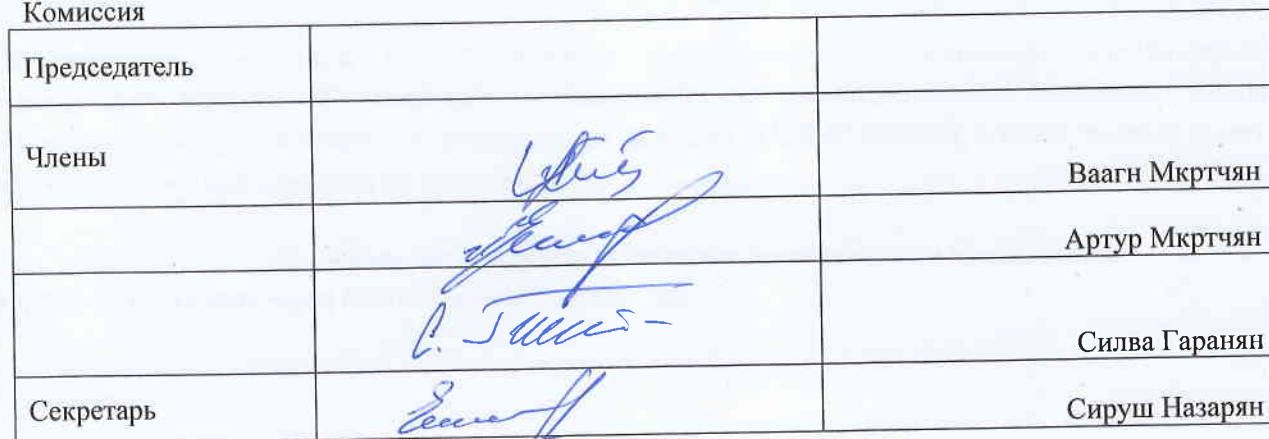 Комиссия
Председатель
Члены
Ваагн Мкртчян
Артур Мкртчян
Силва Гаранян
Секретарь
Сируш Назарян